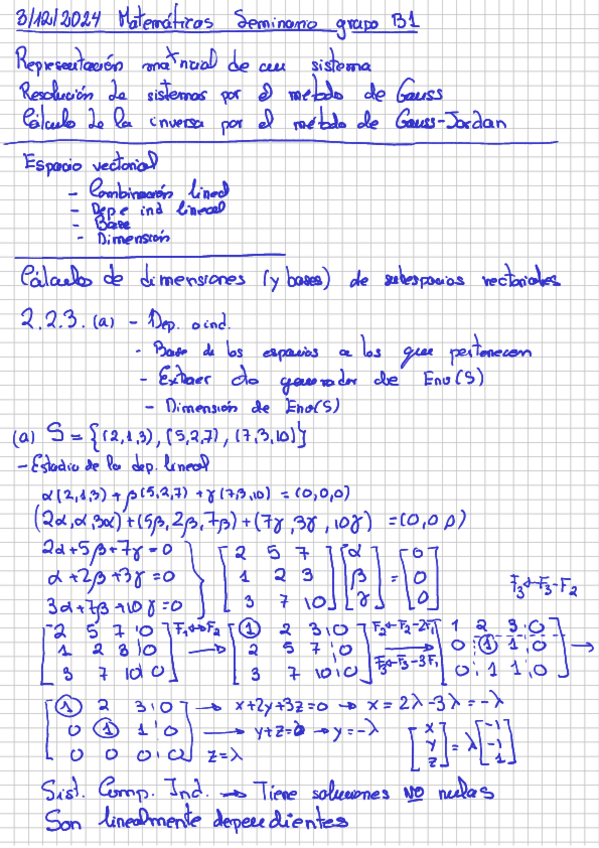 3/12/2024 Matemáticas Seminario grupo B1
Representación matricial de un sistema
Resolución de sistemas por el método de Gauss
Cálculo de la inversa por el método de Gauss-Jordan
Espacio vectorial
- Combinación lineal
- Dep e ind lineal
- Base
- Dimensión
Cálculo de dimensiones (y bases) de subespacios vectoriales
2.2.3. (a) - Dep. o ind.
- Base de los espacios a los que pertenecen
- Extraer do generador de Env(S)
- Dimensión de Env(S)
(a) S = {(2,1,3), (5,2,7), (7,3,10)}
- Estudio de la dep. lineal
α(2,1,3) + β(5,2,7) + γ(7,3,10) = (0,0,0)
(2α,α,3α)+(5β,2β,7β)+(7γ,3γ,10γ) = (0,0,0)
2α+5β+7γ=0 [2 5 7] [α] [0]
α+2β+3γ=0 [1 2 3] [β] = [0]
3α+7β+10γ=0 [3 7 10] [γ] [0] F3←F3-F2
[2 5 7 0] F1↔F2 [1 2 3 0] F2←F2-2F1 [1 2 3 0]
[1 2 3 0] → [2 5 7 0] → [0 1 1 0] →
[3 7 10 0] [3 7 10 0] F3←F3-3F1 [0 1 1 0]
[1 2 3 0] → x+2y+3z=0 → x = 2λ-3λ = -λ
[0 1 1 0] → y+z=0 → y=-λ [x y z] = λ[-1 -1 1]
[0 0 0 0] z=λ
Sist. Comp. Ind. → Tiene soluciones NO nulas
Son linealmente dependientes